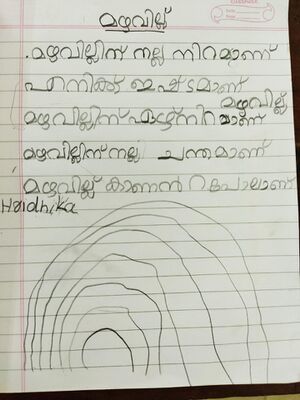 മഴവില്ല്
.മഴവില്ലിന് നല്ല നിറമാണ്
എനിക്ക് ഇഷ്ടമാണ്
മഴവില്ല്
മഴവില്ലിന് ഏഴ് നിറമാണ്
മഴവില്ലിന് നല്ല ചന്തമാണ്
മഴവില്ല് കാണാൻ റ പോലാണ്
Hridhika